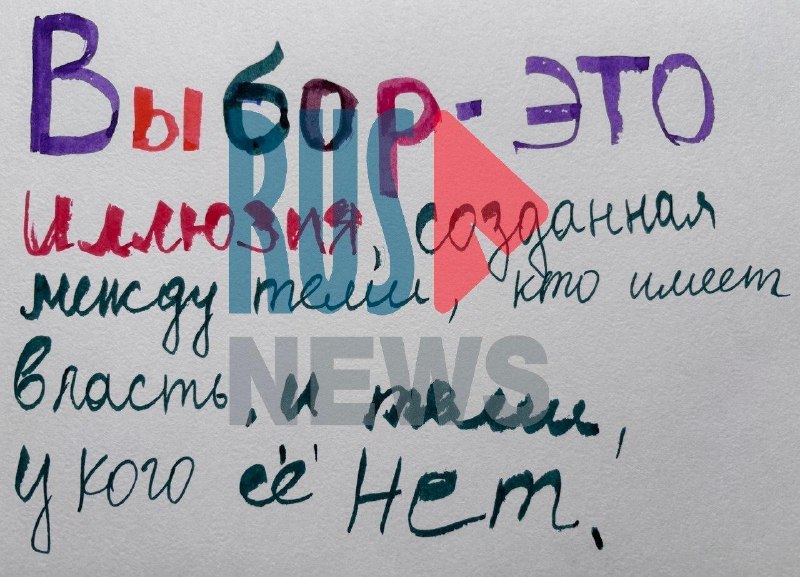 Выбор - это
иллюзия, созданная
между теми, кто имеет
власть, и теми,
у кого её нет.
RUS
NEWS